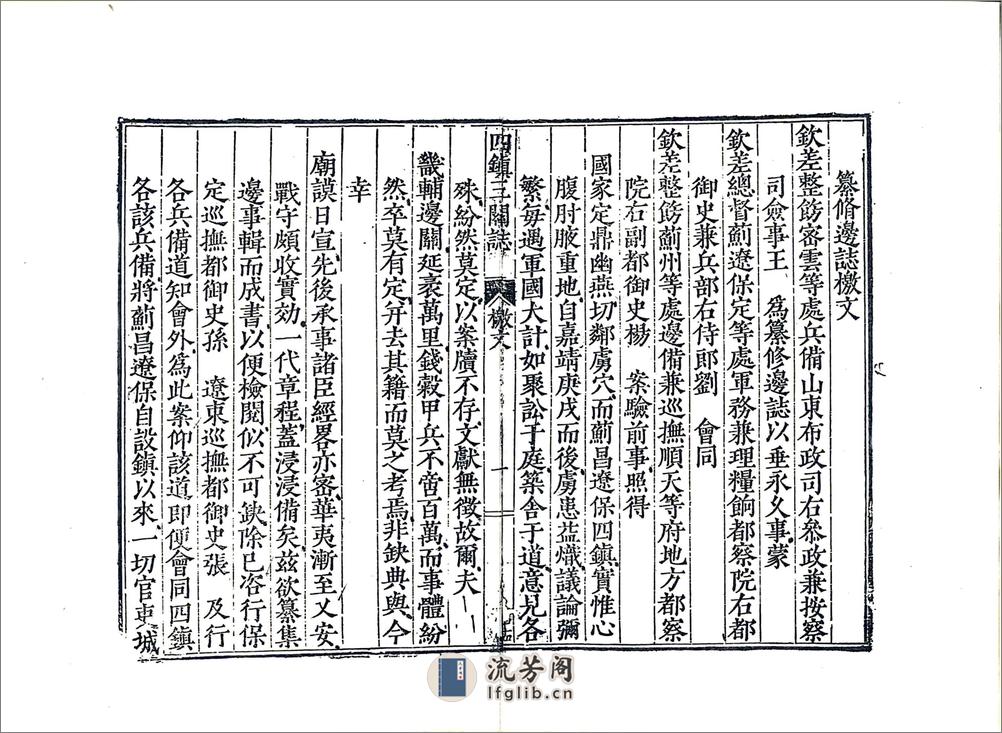 纂脩邊誌檄文
欽差整飭密雲等處兵備山東布政司右參政兼按察
司僉事王 為纂修邊誌以垂永久事蒙
欽差總督薊遼保定等處軍務兼理糧餉都察院右都
御史兼兵部右侍郎劉 會同
欽差整飭薊州等處邊備兼巡撫順天等府地方都察
院右副都御史楊 案驗前事照得
國家定鼎幽燕切鄰虜穴而薊昌遼保四鎮實惟心
腹肘腋重地自嘉靖庚戌而後虜患益熾議論彌
繁每遇軍國大計如聚訟于庭築舍于道意見各
四鎮三關誌 檄文 一
殊紛然莫定以案牘不存文獻無徵故爾夫一
畿輔邊關延袤萬里錢穀甲兵不啻百萬而事體紛
然卒莫有定并去其籍而莫之考焉非缺典與今
幸
廟謨日宣先後承事諸臣經畧亦密華夷漸至乂安
戰守頗收實効一代章程蓋浸浸備矣茲欲纂集
邊事輯而成書以便檢閱似不可缺除已咨行保
定巡撫都御史孫 遼東巡撫都御史張 及行
各兵備道知會外為此案仰該道即便會同四鎮
各該兵備將薊昌遼保自設鎮以來一切官吏城
流芳阁
lfglib.cn